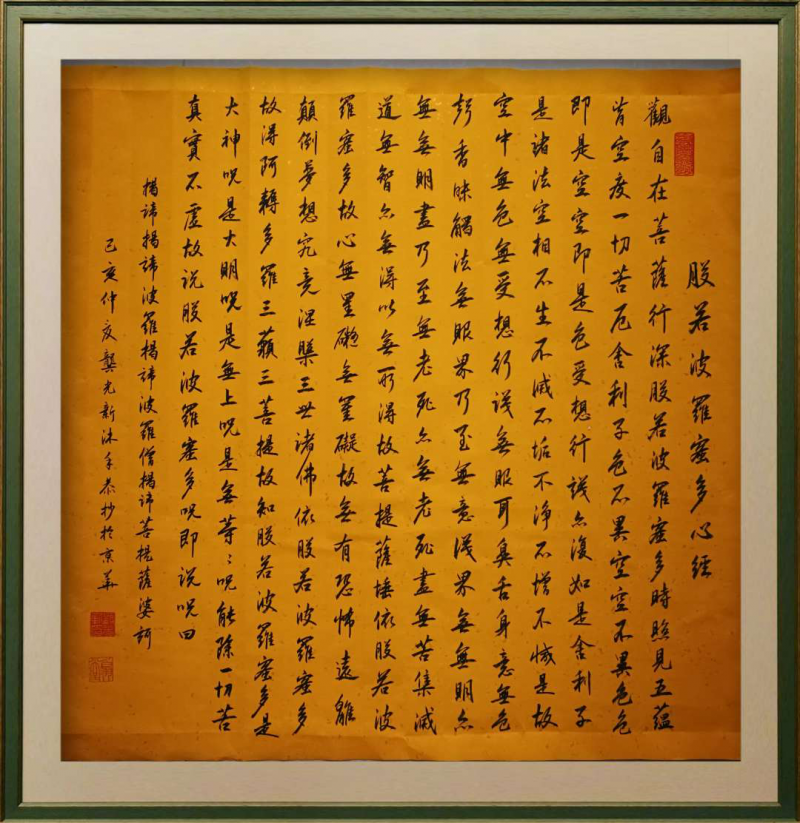 般若波羅蜜多心經
觀自在菩薩行深般若波羅蜜多時照見五蘊
皆空度一切苦厄舍利子色不異空空不異色色
即是空空即是色受想行識亦復如是舍利子
是諸法空相不生不滅不垢不淨不增不減是故
空中無色無受想行識無眼耳鼻舌身意無色
聲香味觸法無眼界乃至無意識界無無明亦
無無明盡乃至無老死亦無老死盡無苦集滅
道無智亦無得以無所得故菩提薩埵依般若波
羅蜜多故心無罣礙無罣礙故無有恐怖遠離
顛倒夢想究竟涅槃三世諸佛依般若波羅蜜多
故得阿耨多羅三藐三菩提故知般若波羅蜜多是
大神咒是大明咒是無上咒是無等々咒能除一切苦
真實不虛故說般若波羅蜜多咒即說咒曰
揭諦揭諦波羅揭諦波羅僧揭諦菩提薩婆訶
己亥仲夏龔光新沐手恭抄於京華